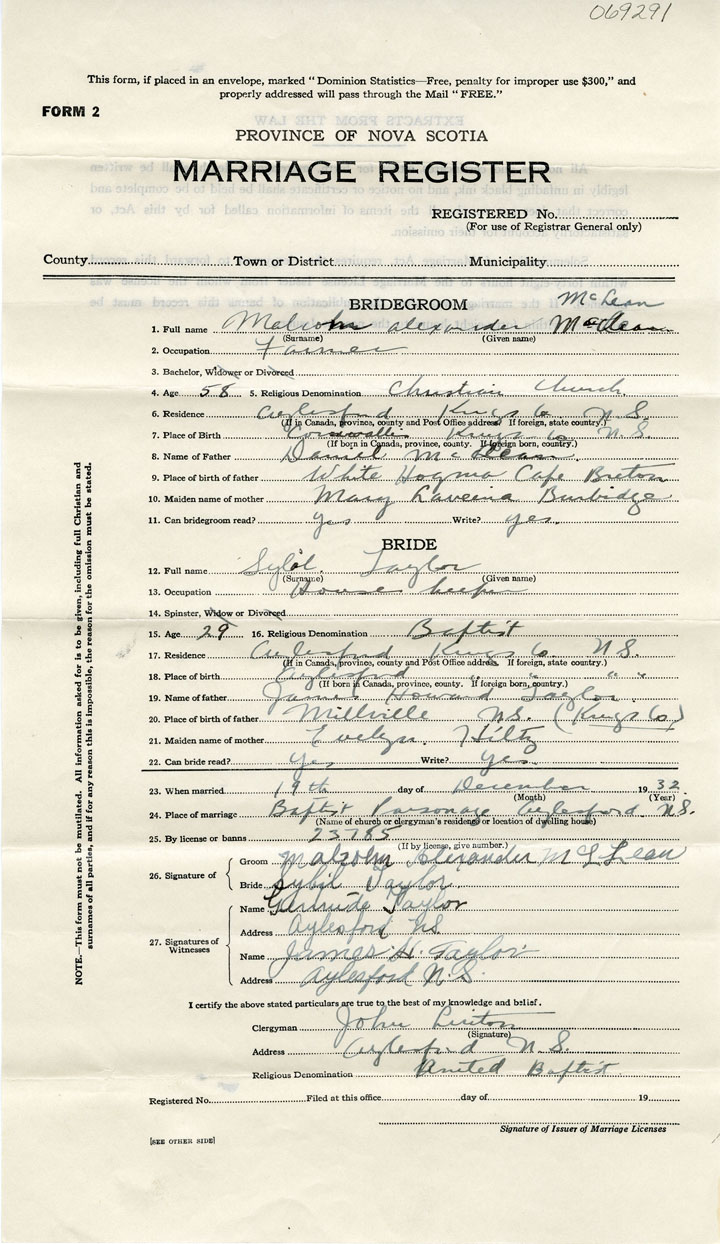 069291
This form, if placed in an envelope, marked "Dominion Statistics—Free, penalty for improper use $300," and
properly addressed will pass through the Mail "FREE."
FORM 2
PROVINCE OF NOVA SCOTIA
MARRIAGE REGISTER
REGISTERED No.
(For use of Registrar General only)
County Town or District Municipality
BRIDEGROOM McLean
1. Full name Malcolm Alexander McLean
(Surname) (Given name)
2. Occupation Farmer
3. Bachelor, Widower or Divorced
4. Age 58 5. Religious Denomination Christian Church
6. Residence Aylesford Kings Co N.S.
(If in Canada, province, county and Post Office address. If foreign, state country.)
7. Place of Birth Cornwallis Kings Co N.S.
(If born in Canada, province, county. If foreign born, country.)
8. Name of Father Daniel McLean
9. Place of birth of father White Cape Breton
10. Maiden name of mother Mary Burbidge
11. Can bridegroom read? Yes Write? yes.
BRIDE
12. Full name Sybil Taylor
(Surname) (Given name)
13. Occupation House keeper
14. Spinster, Widow or Divorced
15. Age 29 16. Religious Denomination Baptist
17. Residence Aylesford Kings Co N.S.
(If in Canada, province, county and Post Office address. If foreign, state country.)
18. Place of birth Aylesford " " " "
(If born in Canada, province, county. If foreign born, country.)
19. Name of father James Howard Taylor
20. Place of birth of father Millville N.S. (Kings Co)
21. Maiden name of mother Evelyn Hiltz
22. Can bride read? Yes Write? Yes
23. When married 19th day of December 1932
(Month) (Year)
24. Place of marriage Baptist Parsonage Aylesford N.S.
(Name of church or clergyman's residence, or location of dwelling house)
25. By license or banns 23785
(If by license, give number.)
26. Signature of Groom Malcolm Alexander McLean
Bride Sybil Taylor
27. Signatures of Witnesses Name Gertrude Taylor
Address Aylesford N.S.
Name James H. Taylor
Address Aylesford N.S.
I certify the above stated particulars are true to the best of my knowledge and belief.
Clergyman John Linton
(Signature)
Address Aylesford N.S.
Religious Denomination United Baptist
Registered No. Filed at this office day of 19
Signature of Issuer of Marriage Licenses
[SEE OTHER SIDE]
NOTE.—This form must not be mutilated. All information asked for is to be given, including full Christian and
surnames of all parties, and if for any reason this is impossible, the reason for the omission must be stated.